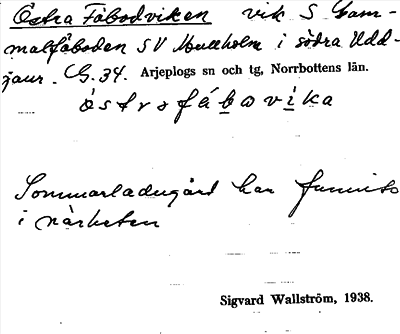 Östra Fäbodviken vik S Gam-
malfäboden SV Mullholm i södra Udd-
jaur. G. 34. Arjeplogs sn och tg, Norrbottens län.
ö́strafä́bωvi̱ka
Sommarladugård har funnits
i närheten
Sigvard Wallström, 1938.